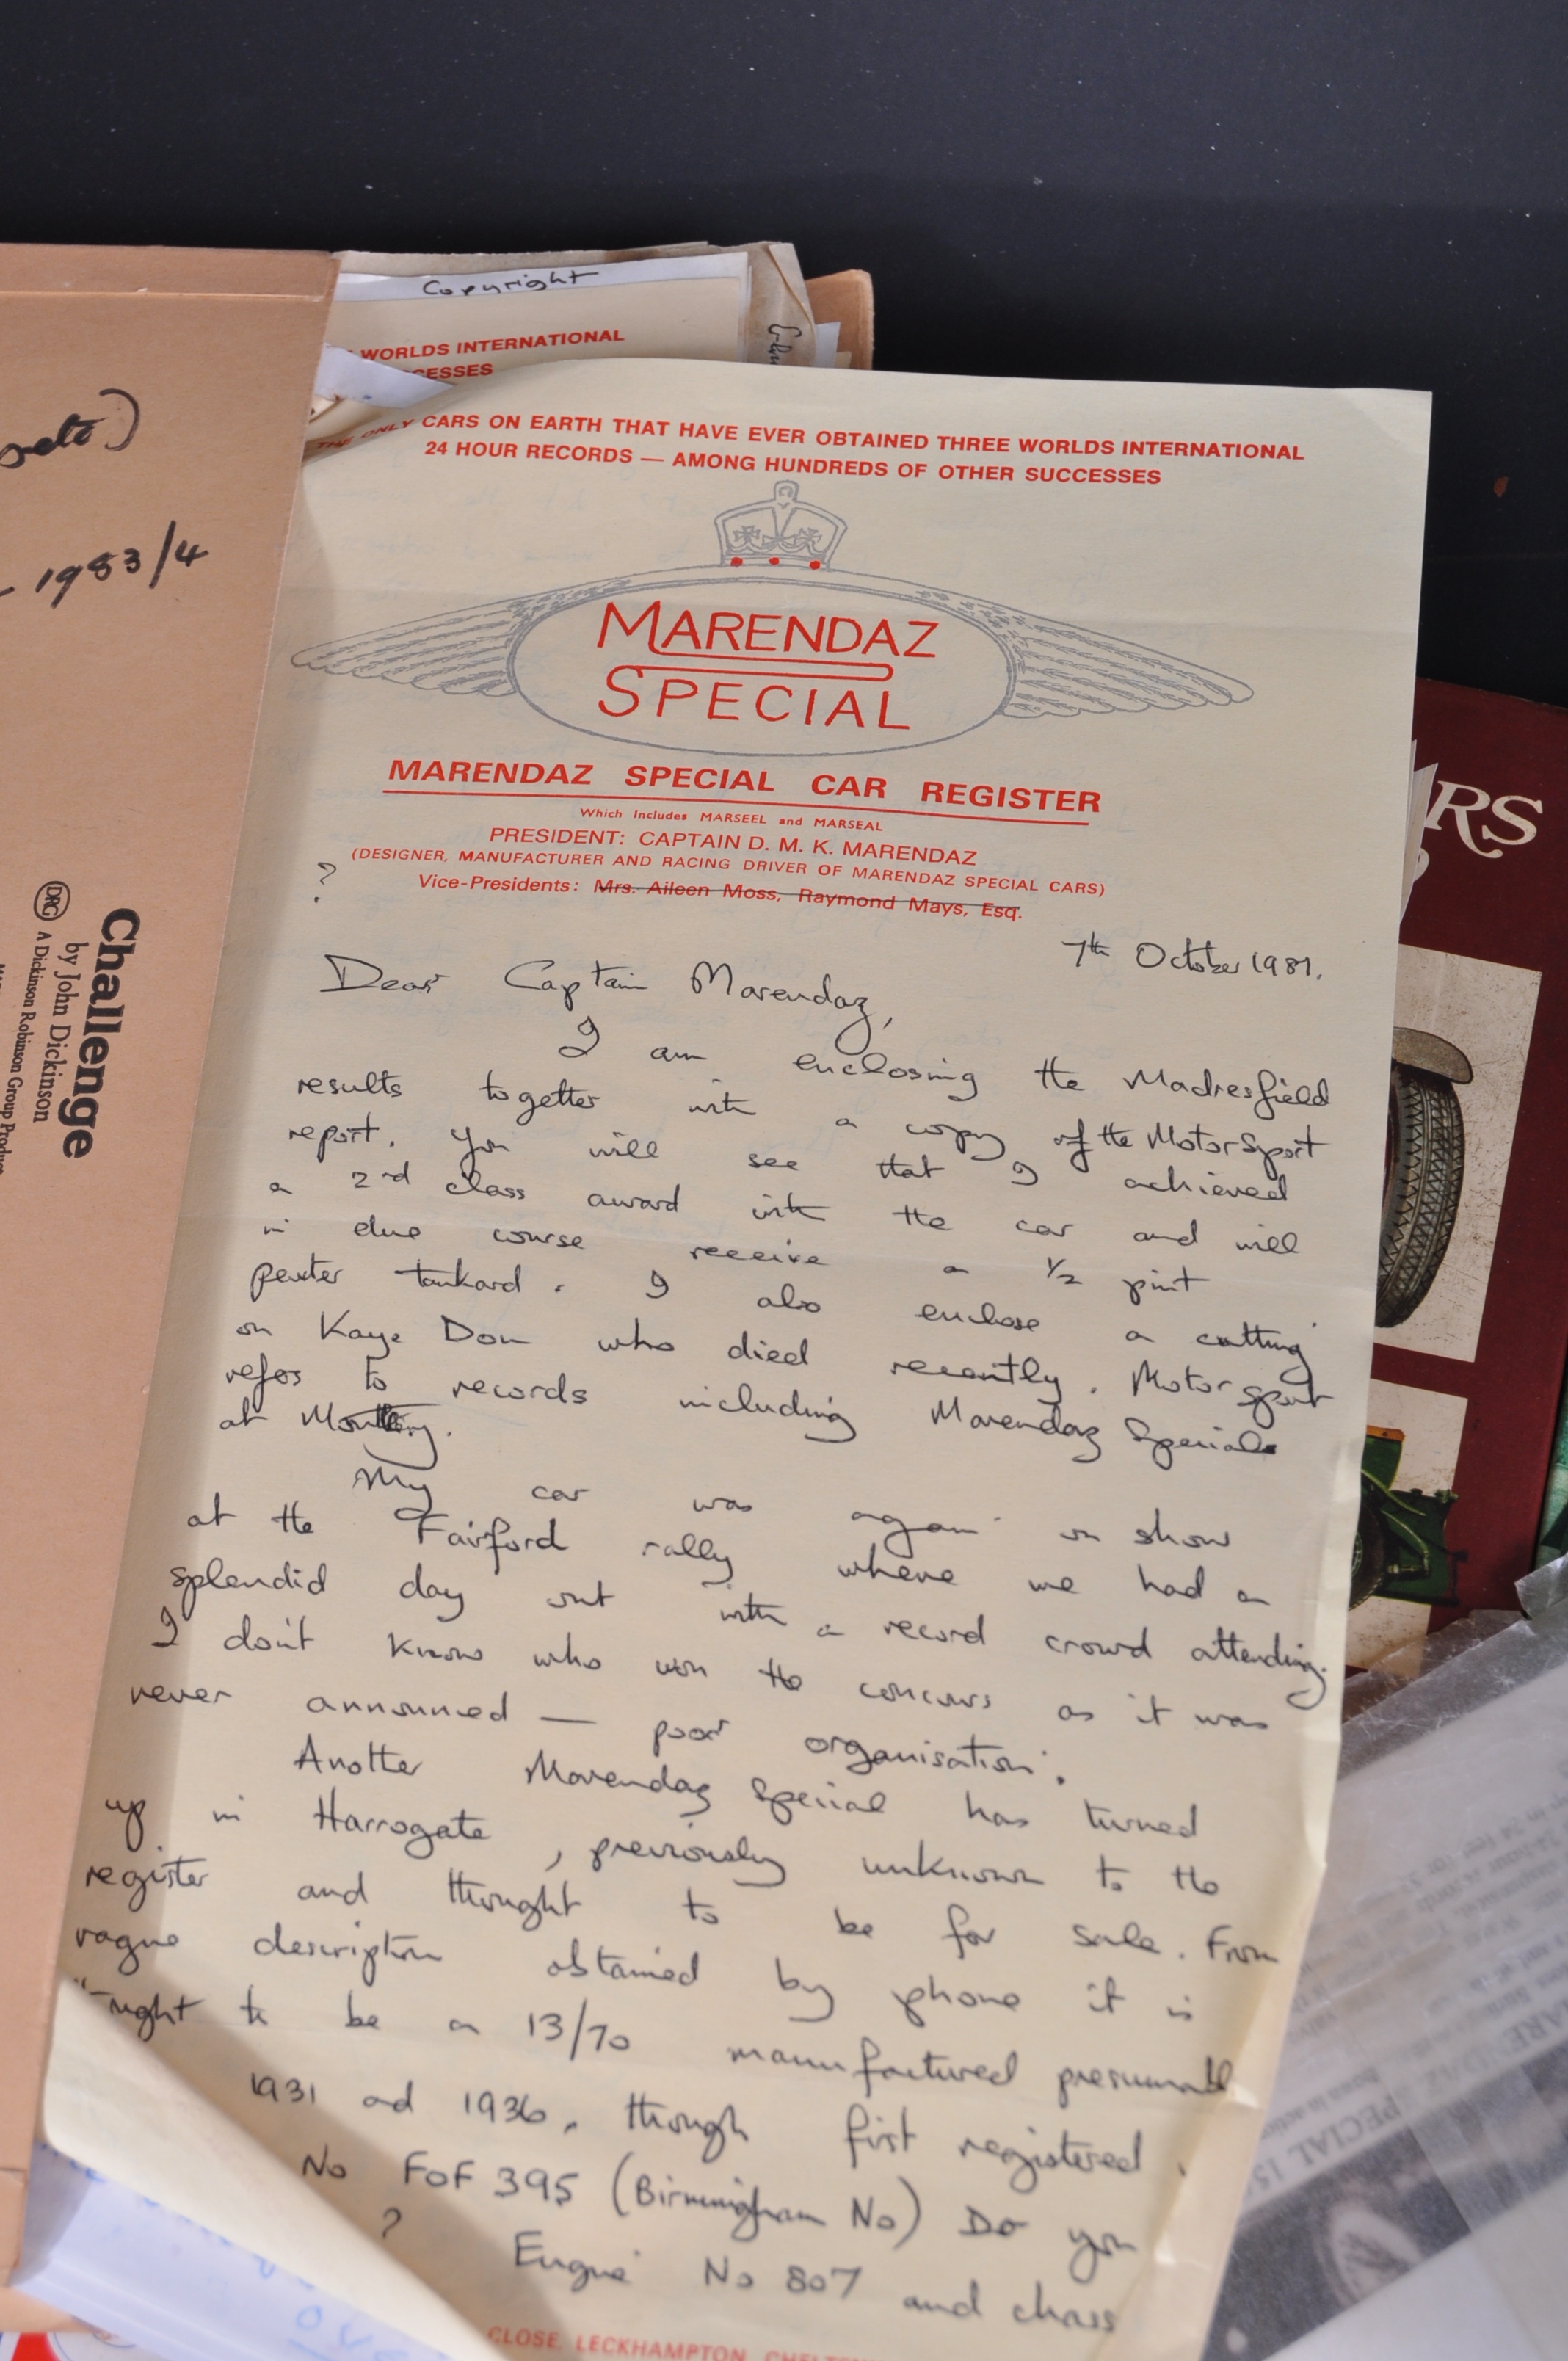 Copyright
WORLDS INTERNATIONAL
CESSES
THE ONLY CARS ON EARTH THAT HAVE EVER OBTAINED THREE WORLDS INTERNATIONAL
24 HOUR RECORDS — AMONG HUNDREDS OF OTHER SUCCESSES
MARENDAZ
SPECIAL
MARENDAZ SPECIAL CAR REGISTER
Which Includes MARSEEL and MARSEAL
PRESIDENT: CAPTAIN D. M. K. MARENDAZ
(DESIGNER, MANUFACTURER AND RACING DRIVER OF MARENDAZ SPECIAL CARS)
? Vice-Presidents: Mrs. Aileen Moss, Raymond Mays, Esq.
7th October 1981.
Dear Captain Marendaz,
I am enclosing the Madresfield
results together with a copy of the MotorSport
report. You will see that I achieved
a 2nd class award with the car and will
in due course receive a 1/2 pint
pewter tankard. I also enclose a cutting
on Kaye Don who died recently. Motor sport
refers to records including Marendaz Specials
at
My car was again on show
at the Fairford rally where we had a
splendid day out with a record crowd attending.
I don't know who won the concours as it was
never announced — poor organisation.
Another Marendaz Special has turned
up in Harrogate, previously unknown to the
register and thought to be for sale. From
vague description obtained by phone it is
to be a 13/70 manufactured
1931 ad 1936, though first registered
No FOF 395 (Birmingham No) Do you
? Engine No 807 and chass
CLOSE, LECKHAMPTON,
1983/4
Challenge
by John Dickinson
DRG A Dickinson Robinson Group Produ
RS